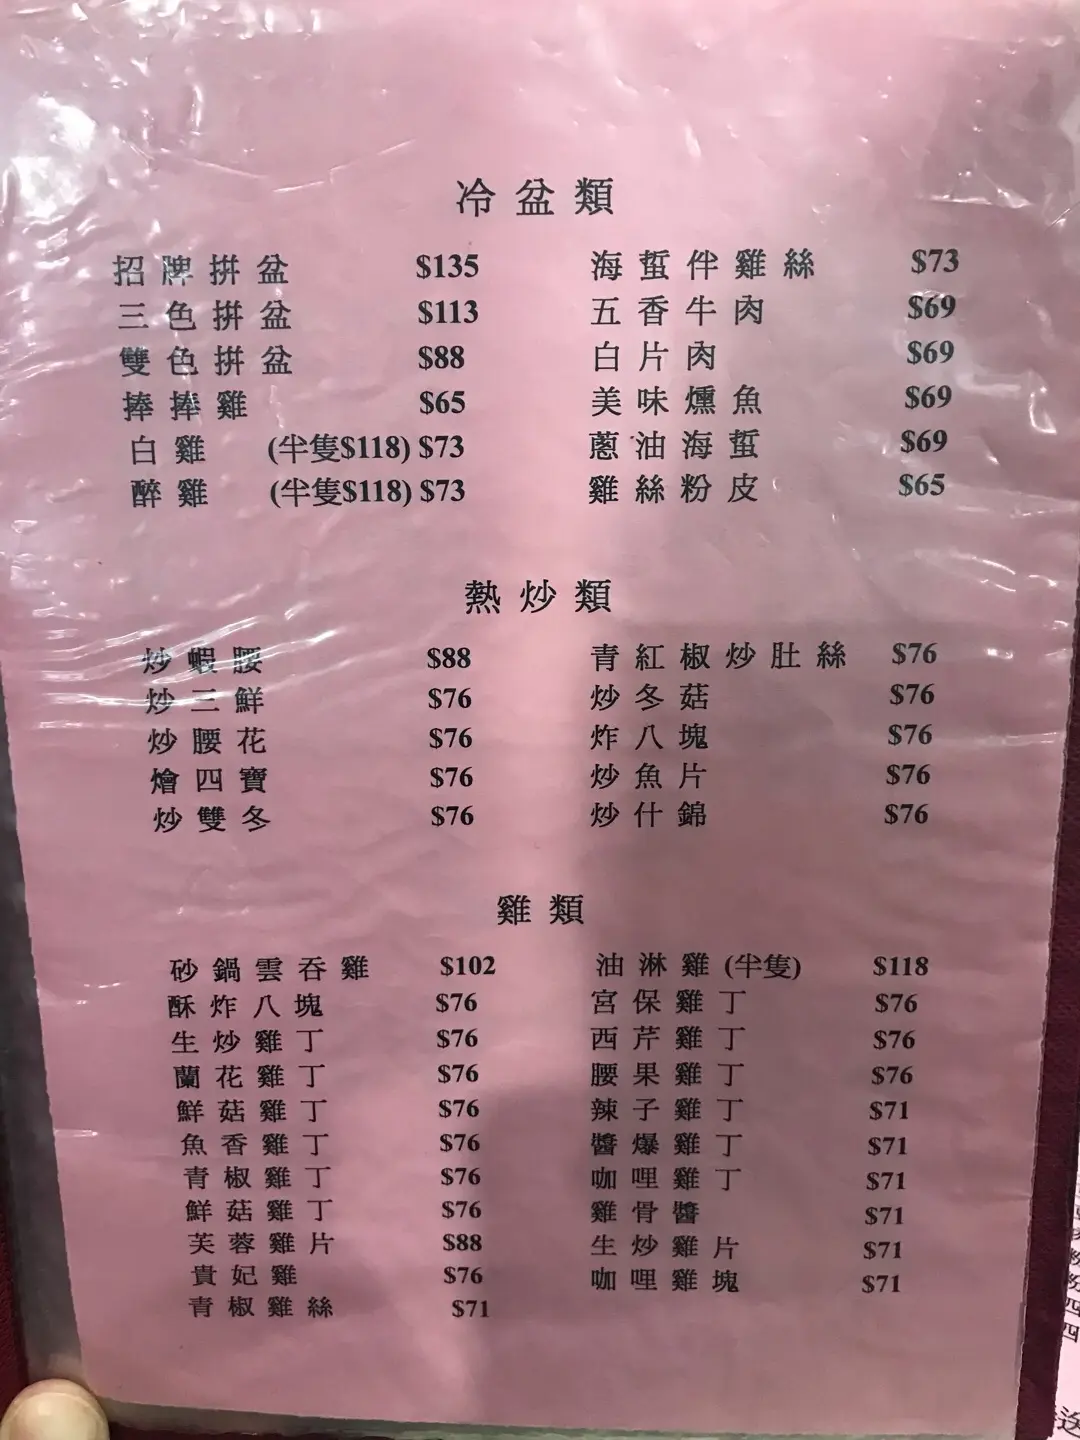 冷盆類
招牌拼盆 $135
三色拼盆 $113
雙色拼盆 $88
捧捧雞 $65
白雞 (半隻$118) $73
醉雞 (半隻$118) $73
海蜇伴雞絲 $73
五香牛肉 $69
白片肉 $69
美味燻魚 $69
蔥油海蜇 $69
雞絲粉皮 $65
熱炒類
炒蝦腰 $88
炒三鮮 $76
炒腰花 $76
燴四寶 $76
炒雙冬 $76
青紅椒炒肚絲 $76
炒冬菇 $76
炸八塊 $76
炒魚片 $76
炒什錦 $76
雞類
砂鍋雲吞雞 $102
酥炸八塊 $76
生炒雞丁 $76
蘭花雞丁 $76
鮮菇雞丁 $76
魚香雞丁 $76
青椒雞丁 $76
鮮菇雞丁 $76
芙蓉雞片 $88
貴妃雞 $76
青椒雞絲 $71
油淋雞(半隻) $118
宮保雞丁 $76
西芹雞丁 $76
腰果雞丁 $76
辣子雞丁 $71
醬爆雞丁 $71
咖哩雞丁 $71
雞骨醬 $71
生炒雞片 $71
咖哩雞塊 $71